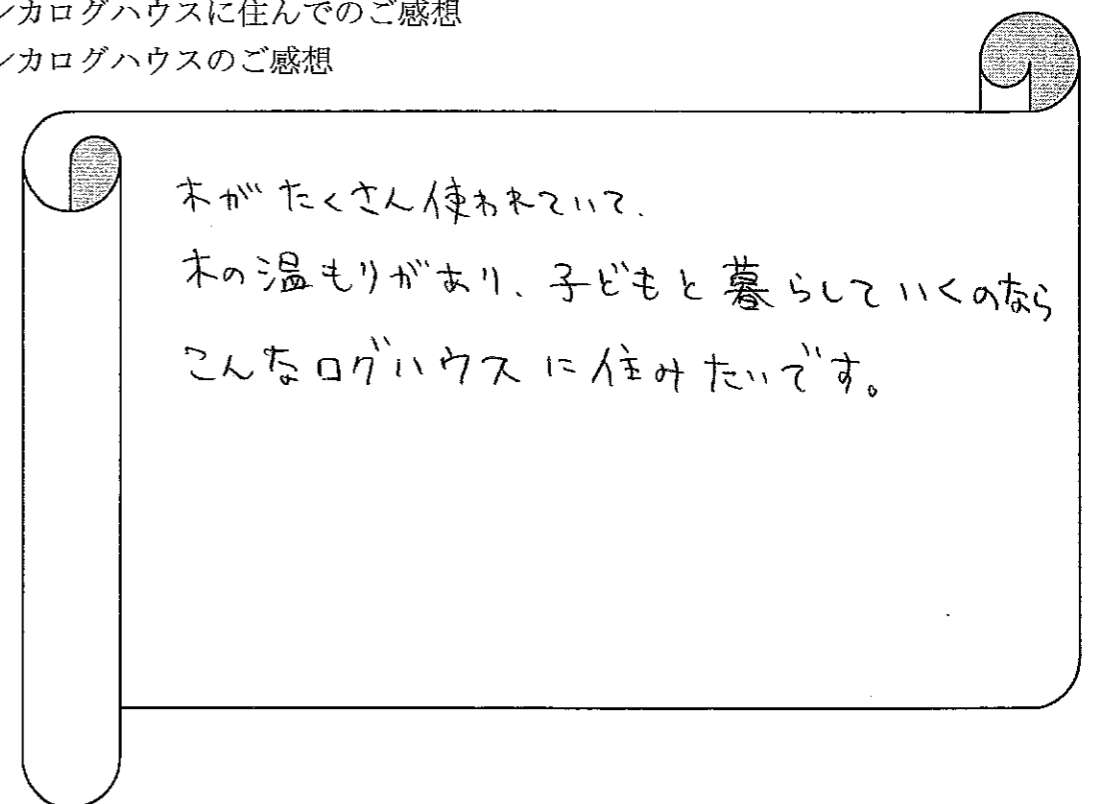 カログハウスに住んでのご感想
カログハウスのご感想
木がたくさん使われていて、
木の温もりがあり、子どもと暮らしていくのなら
こんなログハウスに住みたいです。